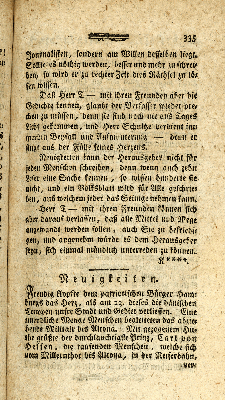 335
Journalisten, sondern am Willen desselben liegt.
Sollte es nöthig werden, besser und mehr zu schrei-
ben, so wird er zu rechter Zeit dies Räthsel zu lö-
sen wissen.
Daß Herr T — mit ihren Freunden über die
Gedichte kennen, glaubt der Verfasser wieder spre-
chen zu müssen, denn sie sind noch nie ans Tages
Licht gekommen, und Herr Schultze verwirrt im-
parirt Vernunft und Aufmunterung — denn er
sagt aus der Fülle seines Herzens.
Neuigkeiten kann der Herausgeber nicht für
jeden Menschen schreiben, denn wenn auch zehn
hier eine Sache kennen, so wissen hunderte sie
nicht, und ein Volksblatt wird für Alle geschrie-
ben, aus welchem jeder das Seinige nehmen kann.
Herr T — mit ihren Freunden können sich
gar darauf verlassen, daß alle Mittel und Wege
angewandt werden sollen, auch Sie zu befriedi-
gen, und angenehm würde es dem Herausgeber
seyn, sich einmal mündlich unterreden zu können.
H*****
Neuigkeiten.
Freudig klopfte dem patriotischen Bürger Ham-
burgs das Herz, als am 22. dieses die dänischen
Truppen unser Stadt und Gebiet verließen. Eine
unendliche Menge Menschen begleiteten das abzie-
hende Militair bis Altona. Mit gezogenem Hute
grüßte der durchlauchtige Prinz, Carl von
Hessen, die tausenden Menschen, welche sich
vom Millernthor bis Altona, in der Reiserbahn,